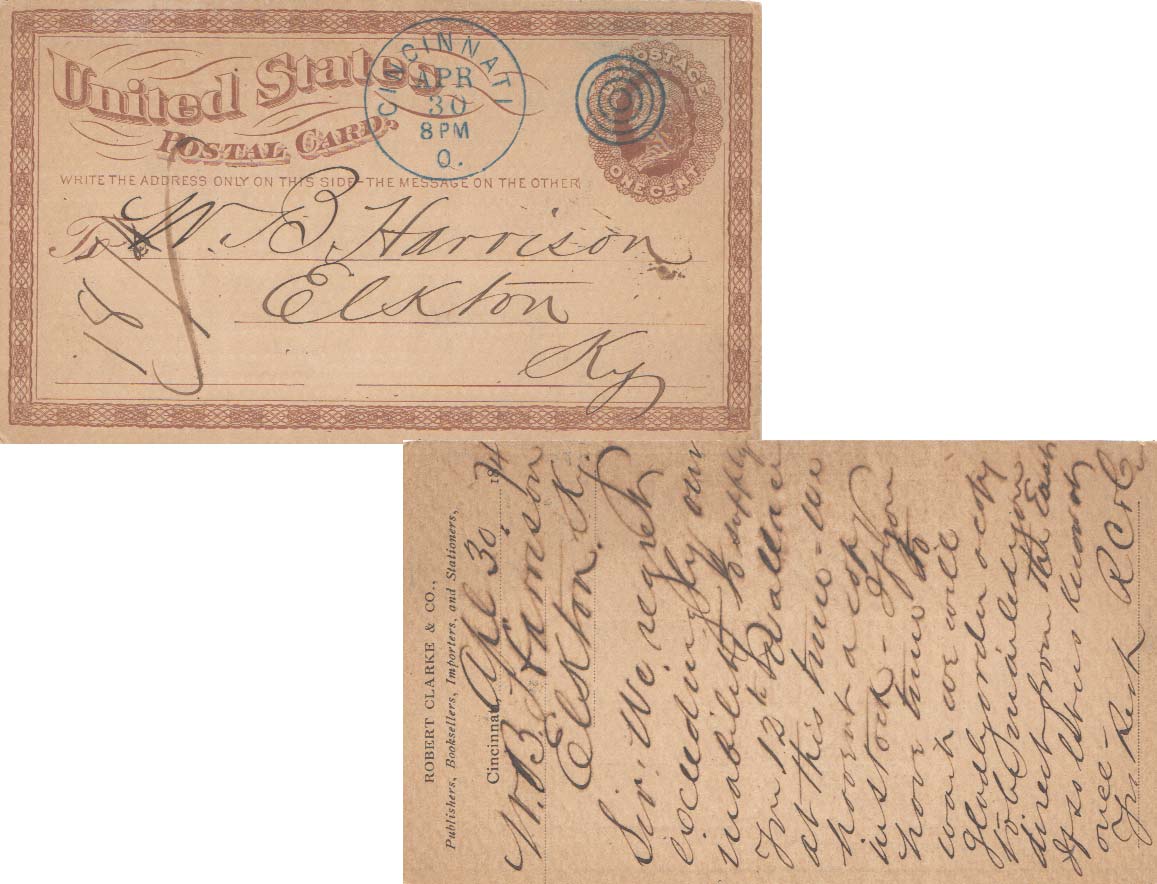 United States
POSTAL CARD.
CINCINNATI
APR
30
8 PM
O.
POSTAGE
ONE CENT
WRITE THE ADDRESS ONLY ON THIS SIDE-THE MESSAGE ON THE OTHER
To W. B. Harrison
Elkton
Ky
ROBERT CLARKE & CO.,
Publishers, Booksellers, Importers, and Stationers,
Cincinnati, Apl 30 1874
W. B. Harrison
Elkton Ky.
Sir: We regret
exceedingly our
inability to supply
you 12 Wallace
at this time - We
havent a copy
in stock - If you
have time to
wait we will
gladly order a copy
to be mailed you
direct from the East
If so let us know at
once -
Yrs Resp R C & Co